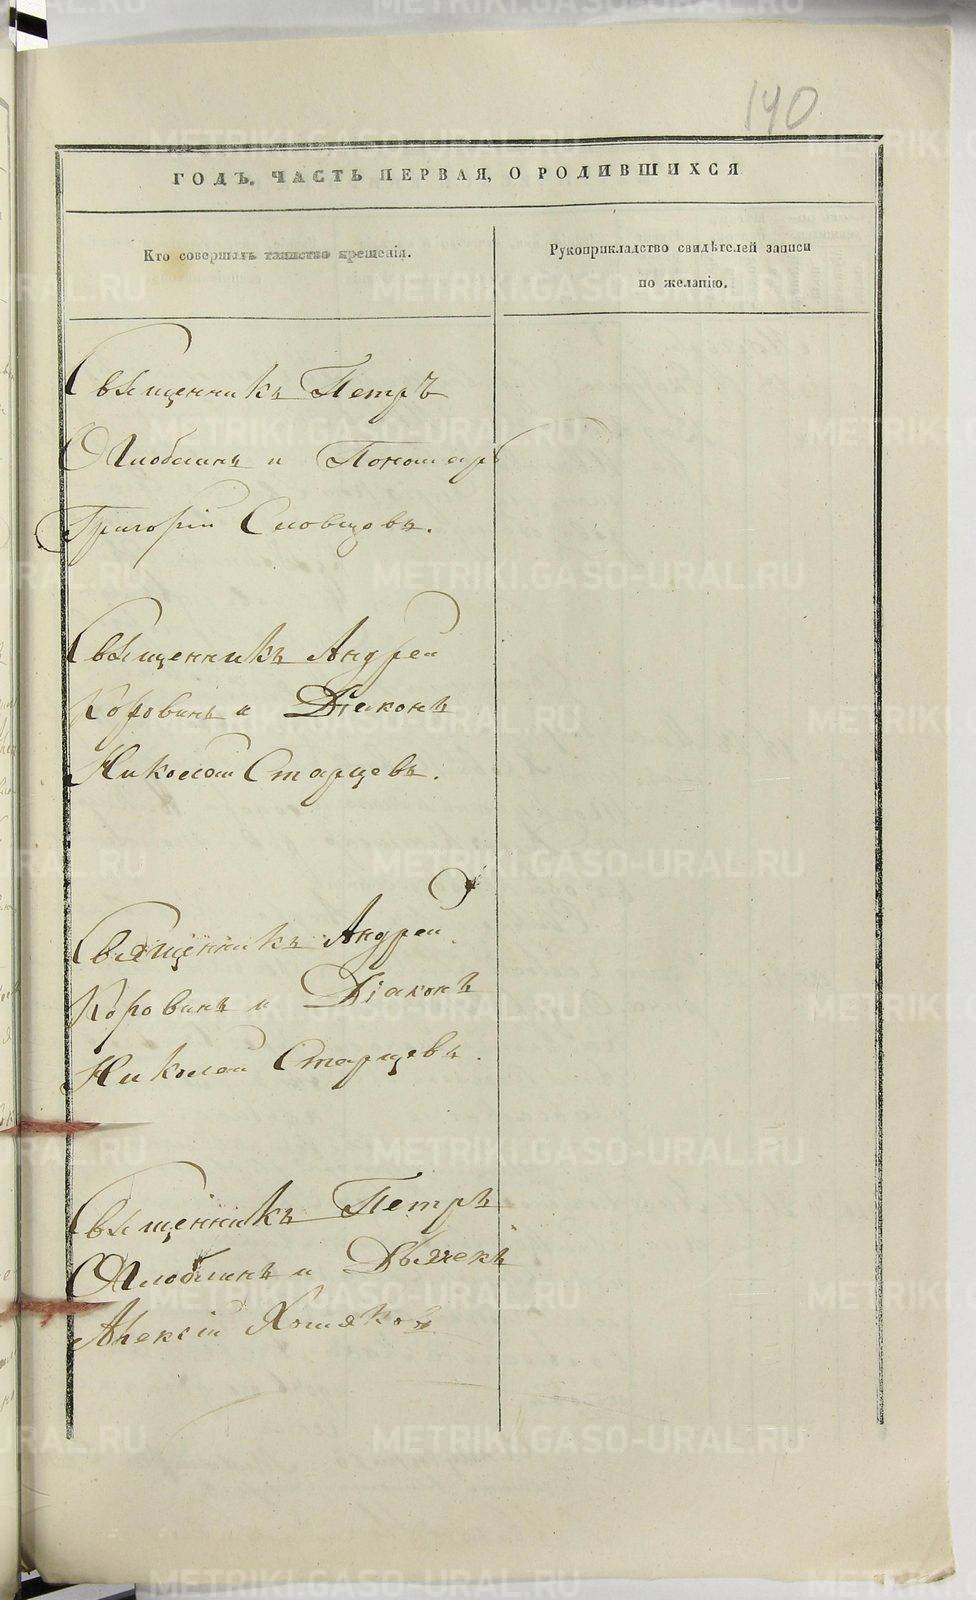 140
ГОДЪ. ЧАСТЬ ПЕРВАЯ, О РОДИВШИХСЯ
Кто совершалъ таинство крещенія.
Рукоприкладство свидѣтелей записи
по желанію.
Священникъ Петръ
и Пономарь
Григорій Словцовъ.
Священникъ Андрей
Коровинъ и Діаконъ
Николай Старцевъ.
Священникъ Андрей
Коровинъ и Діаконъ
Николай Старцевъ.
Священникъ Петръ
и Дьячекъ
Алексій Хомяковъ
METRIKI.GASO-URAL.RU